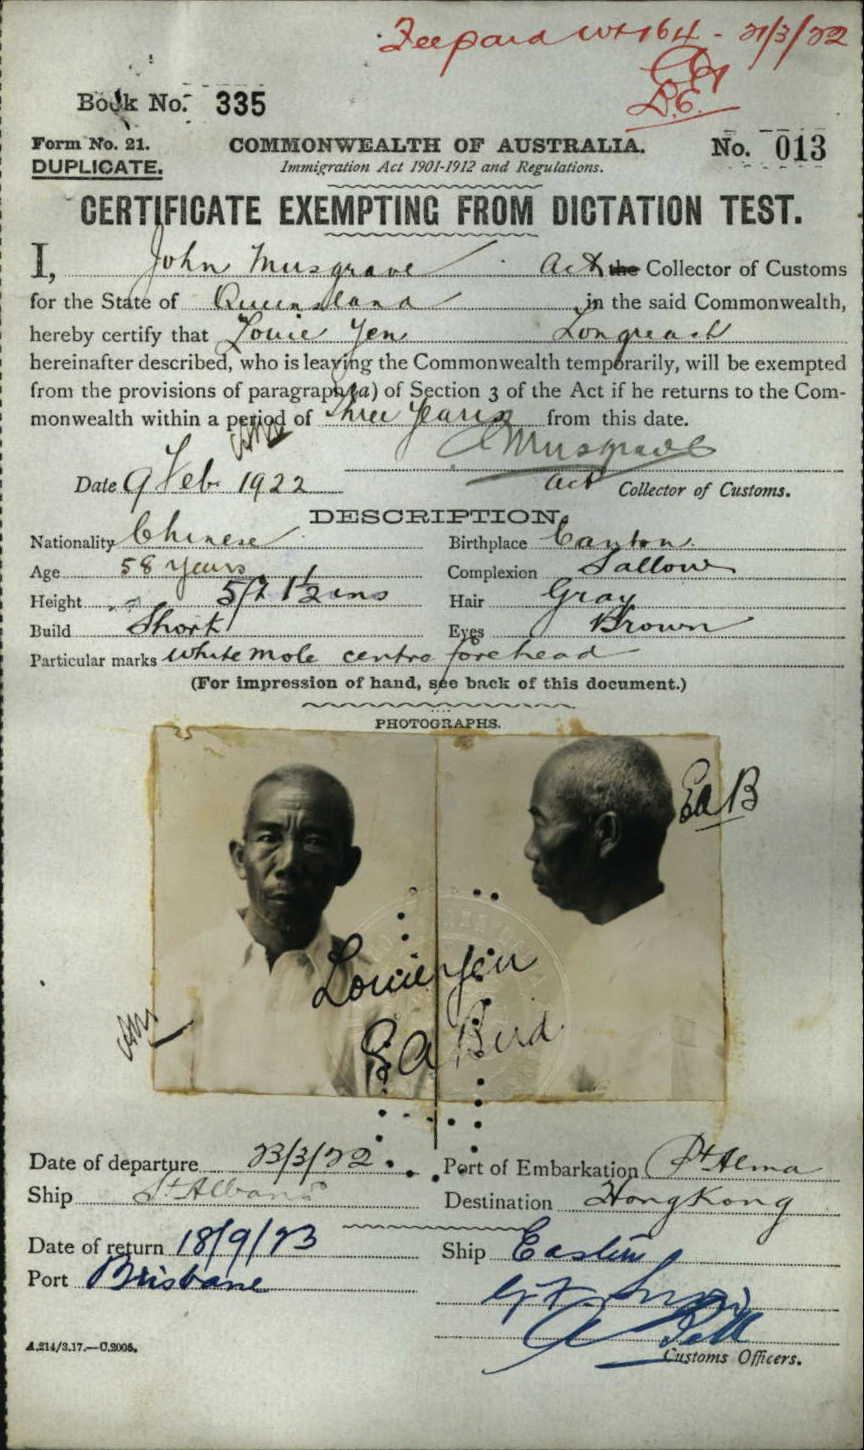 Fee paid W+164 - 21/3/22
Book No. 335
D.E.
Form No. 21. COMMONWEALTH OF AUSTRALIA. No. 013
DUPLICATE. Immigration Act 1901-1912 and Regulations.
CERTIFICATE EXEMPTING FROM DICTATION TEST.
I, John Musgrave Act the Collector of Customs
for the State of Queensland in the said Commonwealth,
hereby certify that Louie Yen Longreach
hereinafter described, who is leaving the Commonwealth temporarily, will be exempted
from the provisions of paragraph (a) of Section 3 of the Act if he returns to the Com-
monwealth within a period of Three Years from this date.
J Musgrave
Date 9 Feb 1922 Act Collector of Customs.
DESCRIPTION.
Nationality Chinese Birthplace Canton
Age 58 years Complexion Sallow
Height 5ft 1½ ins Hair Gray
Build Short Eyes Brown
Particular marks white mole centre forehead
(For impression of hand, see back of this document.)
PHOTOGRAPHS.
Ea B
Louie Yen
Ea Bird
Date of departure 23/3/22 Port of Embarkation Pt Alma
Ship St Albans Destination HongKong
Date of return 18/9/23 Ship Eastern
Port Brisbane
Customs Officers.
A.214/3.17.—C.2005.